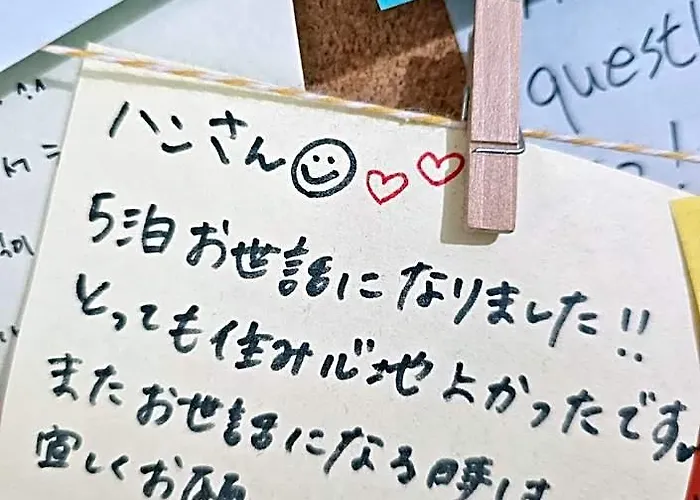 ハンさん
5泊お世話になりました!!
とっても住み心地よかったです
またお世話になる時は
宜しくお願
quest